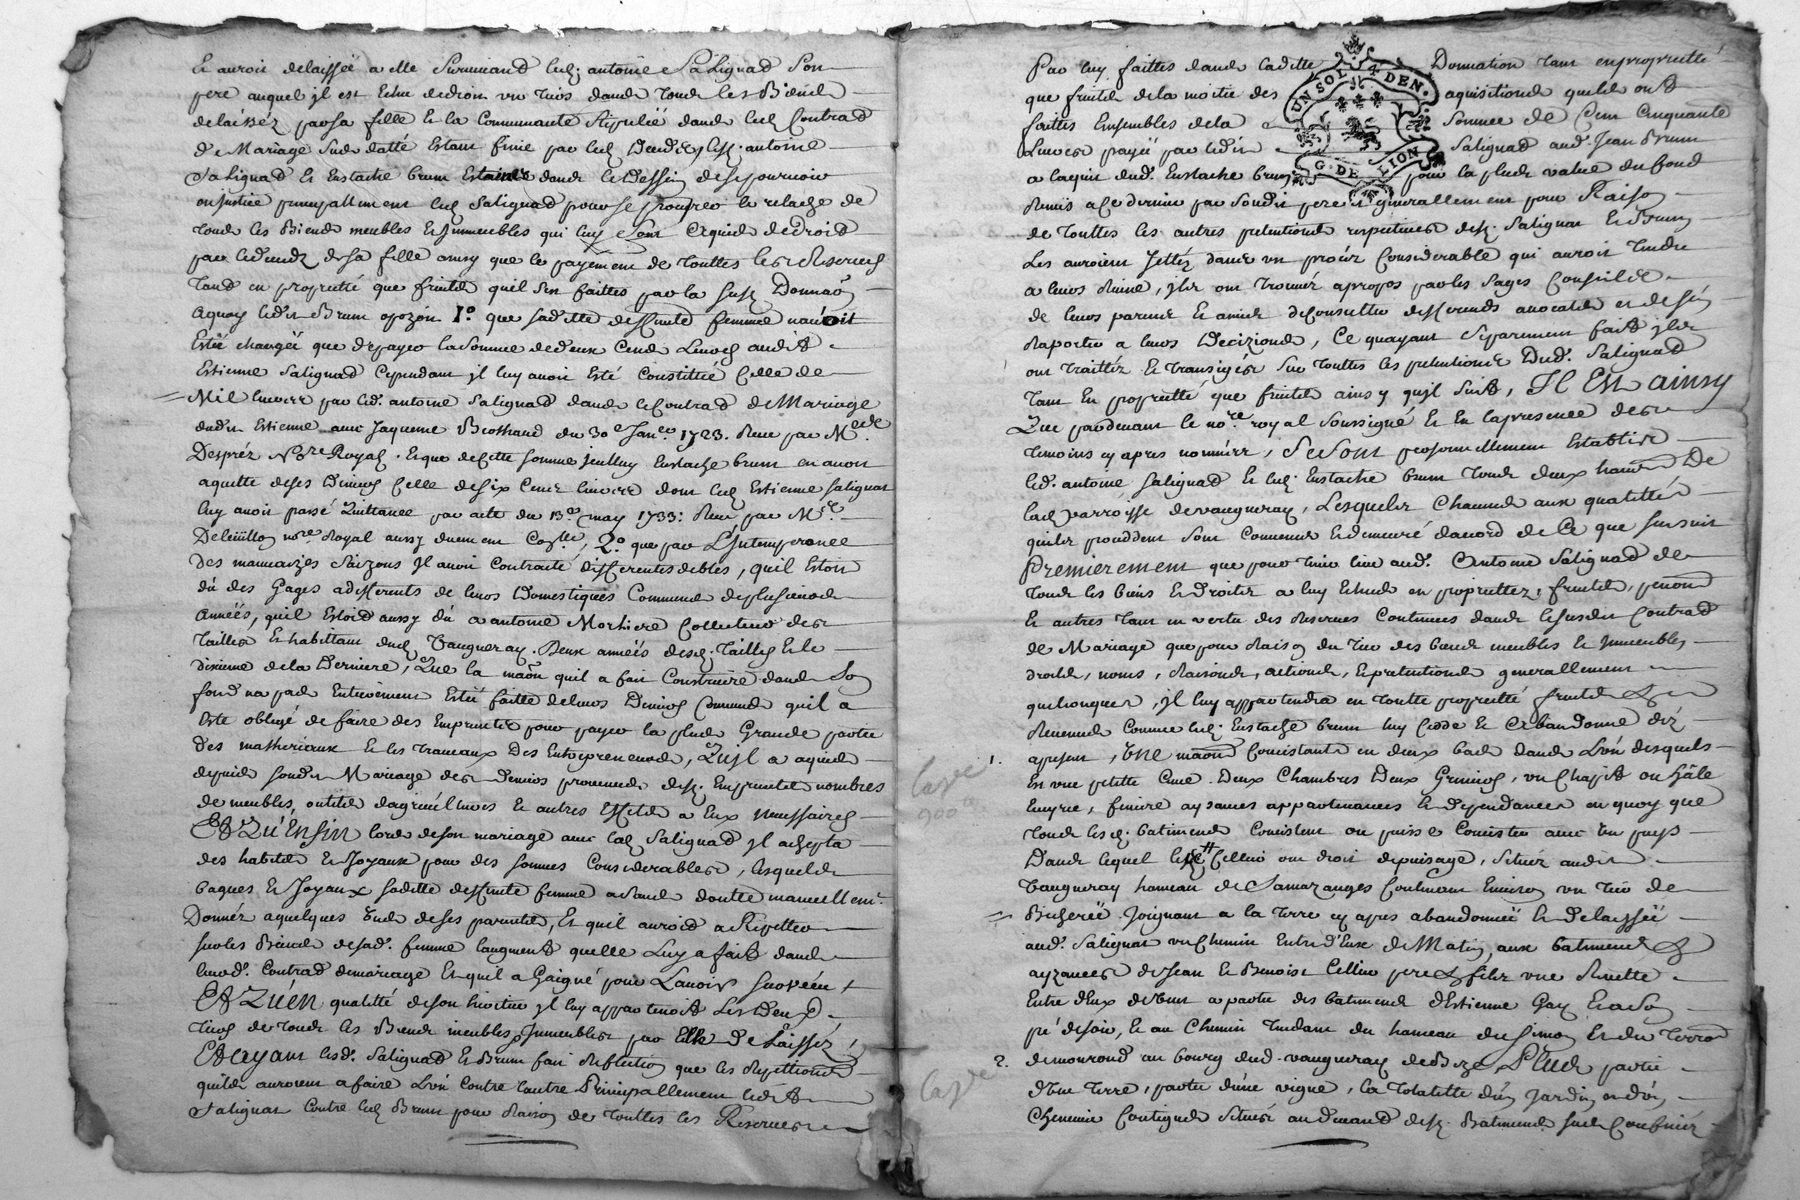 Et auroit delaissée a elle Survivand led. antoine Salignad Son
pere auquel il est Echu de droit un tiers dans tous les Biens
delaissez par sa fille Et la Communauté Stipulée dans led. Contrad
de Mariage Susdatté Estant finie par led. Deceds, led. antoine
Salignad Et Eustache brun Estoient dans le Dessein de se pourvoir
en justice principallement led. Salignad pour se procurer le relache de
tous les Biens meubles Et immeubles qui luy Sont acquis de droit
par le deceds de sa fille ainsy que le payement de touttes les Reserves
tand en proprieté que fruits quil s'en faittes par la susd. Donnaõn
aquoy ledit Brun opozoit 1º. que sadite deffunte femme n'avoit
Esté chargée que de payer la Somme de deux Cends Livres audit
Estienne Salignad Cependant il luy avoit Esté Constitué Celle de
Mil livres par led. antoine Salignad dans le Contrad de Mariage
dudit Estienne avec Jaqueme Berthaud du 30e Janer 1723. Receu par Me
Desprez Nore Royal. Et que de cette somme icelluy Eustache brun en avoit
aquitté de ses Deniers Celle de six Cent livres dont led. Estienne Salignat
luy avoit passé Quittance par acte du 13e may 1733: Receu par Me
nore Royal aussy duement Coṅllé, 2º. que par L'intemperance
des mauvaizes Saizons il avoit Contracté differentes debtes, quil Estoit
dû des Gages a differents de leurs Domestiques Comme de plusieurs
années, quil Estoit aussy dû a antoine Morliere Collecteur des
Tailles Et habittant dud. Vaugneray. Deux années desd. Tailles Et le
dixieme de la Derniere, Que la maõn quil a fait Construire dans Son
fond na pas Entierement Estée faitte de leurs Deniers Comuns quil a
Esté obligé de faire des Emprunts pour payer la plus Grande partie
des matheriaux Et les travaux Des Entrepreneurs, Quil a aquis
depuis sondit Mariage des deniers provenus desd. Emprunts nombres
de meubles, outils dagriculture Et autres Effets a Eux necessaires
Et Qu'Enfin lors de son mariage avec lad. Salignad il achepta
des habits Et Joyaux pour des sommes Considerables, lesquels
bagues Et Joyaux sadite deffunte femme a sans doutte manuellemt.
Donnés a quelques uns de ses parents, Et quil auroit a Repetter
sur les Biens de sad. femme laugment quelle Luy a fait dans
leurd. Contrad de mariage Et quil a Gaigné pour L'avoir survécu
Et Qu'en qualité de son heritier il luy appartenoit Les Deux
tiers de tous les Biens meubles, Immeubles par Elle De Laissez,
Et ayant lesd. Salignad Et Brun fait Reflection que les Repetitions
quils auroient a faire L'un Contre l'autre Principallement ledit
Salignat Contre led. Brun pour Raison de Touttes les Reserves
Par luy faittes dans ladite Donnation tant en proprietté
que fruits de la moitié des aquisitions quils ont
faittes Ensembles de la Somme de Cent Cinquante
Livres payée par ledit Salignad aud. Jean Brun
a laquit dud. Eustache brun pour la plus value du fond
Remis a ce dernier par sondit pere Et generallement pour Raison
de touttes les autres pretentions respectives desd. Salignat Et Brun
Les auroient Jettez dans un procès Considerable qui auroit Tendu
a leurs Ruine, ils ont trouvéz apropos par les Sages Conseils
de leurs parents Et amis de Consulter differends avocats et de s'en
Raporter a leurs Decizions, Ce quayant Separement fait ils
ont Traittéz Et Transigés Sur touttes les pretentions Dud. Salignad
tant En proprietté que fruits ainsy quil suit, Il Est ainsy
Que pardevant le nore. royal soussigné Et En la presence des
temoins cy apres nommez, Se Sont personnellement Establis
led. antoine Salignad Et led. Eustache brun tous deux hants De
lad. parroisse de vaugneray, Lesquels Chacuns aux qualittés
quils procedent sont Convenus Et demeuré dacord de Ce que sensuit
Premierement que pour tenir lieu aud. Antoine Salignad de
tous les biens Et Droits a luy Echus en proprittez, fruits,
Et autres tant en vertu des Reserves Contenues dans le susdit Contrad
de Mariage que pour Raison du tier des biens meubles Et immeubles,
droits, noms, Raisons, actions, Et pretentions generallement
quelconques, il luy appartiendra en toutte proprietté fruits Et
Revenus Comme led. Eustache brun luy Cedde Et Abandonne dez
apresent, Une maõn Consistante en deux bas dans L'un desquels
Est une petite Cave. Deux Chambres Deux Greniers, un Chapit ou hâle
Ecurie, feniere aysances appartenances Et dependances en quoy que
tous lesd. batiments Consistent ou puisse Consister avec un puys
Dans lequel les Cellier ont droit de puisage, Situéz audit
Vaugneray hameau de Lamazanges Contenant Environ un tier de
Bicherée Joignant a la terre cy apres abandonnée Et delaissée
aud. Salignat un Chemin Entre d'Eux de Matin, aux batiments Et
ayzances de Jean Et Benoist Cellier pere Et fils une Ruette
Entre d'Eux de vent a partie des batiments d'Estienne Gay
de soir, Et au Chemin tendant du hameau du Simon Et du Terron
demourond au bourg dud. vaugneray de Bize, Plus partie
d'Une terre, partie d'une vigne, La totalitte d'un Jardin et d'un
Cheneviee Contigues Situés au devand desd. Batiments susd. Confinéz
1.
Cave
900tz
2.
Cave
UN SOL 4 DEN.
G. DE LION